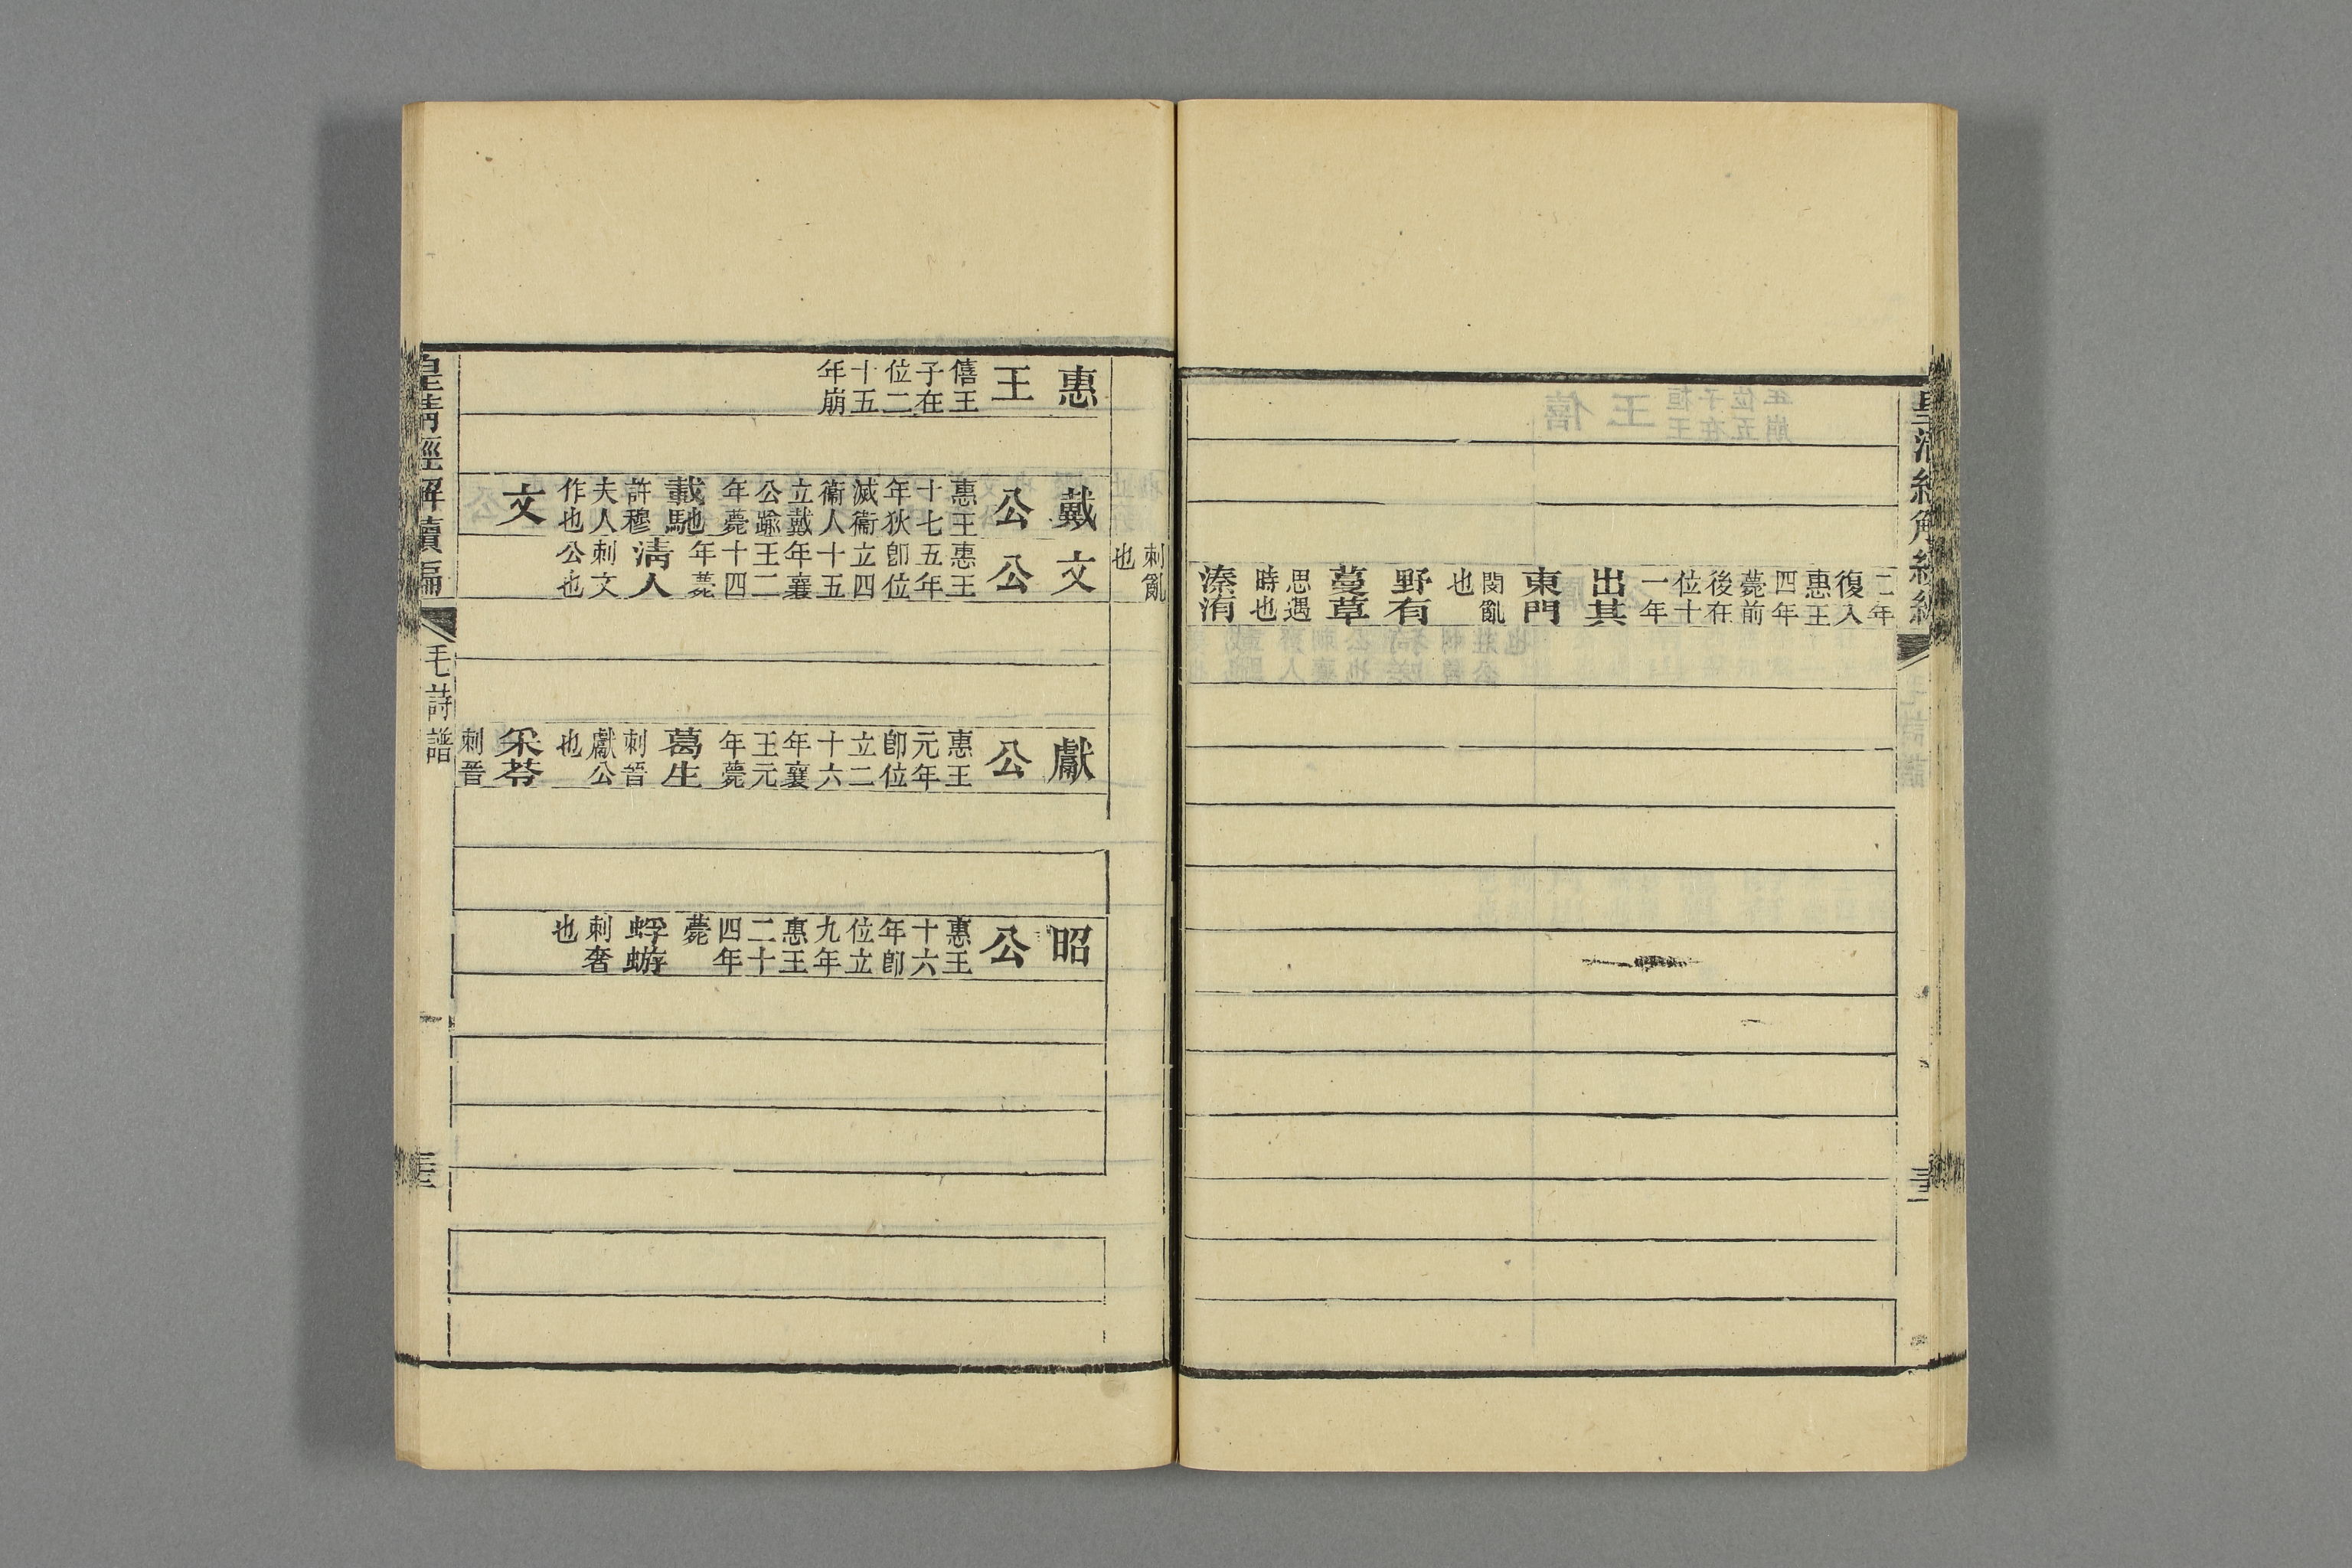 二年復入惠王四年薨前後在位十一年 出其東門 閔亂也 野有蔓草 思遇時也 溱洧
刺亂也
惠王 僖王子在位二十五年崩
戴公 惠王十七年狄滅衞衞人立戴公踰年薨 載馳 許穆夫人作也 文
文公 惠王五年卽位立四十五年襄王二十四年薨 淸人 刺文公也
獻公 惠王元年卽位立二十六年襄王元年薨 葛生 刺晉獻公也 采苓 刺晉
昭公 惠王十六年卽位立九年惠王二十四年薨 蜉蝣 刺奢也
皇淸經解續編
毛詩譜